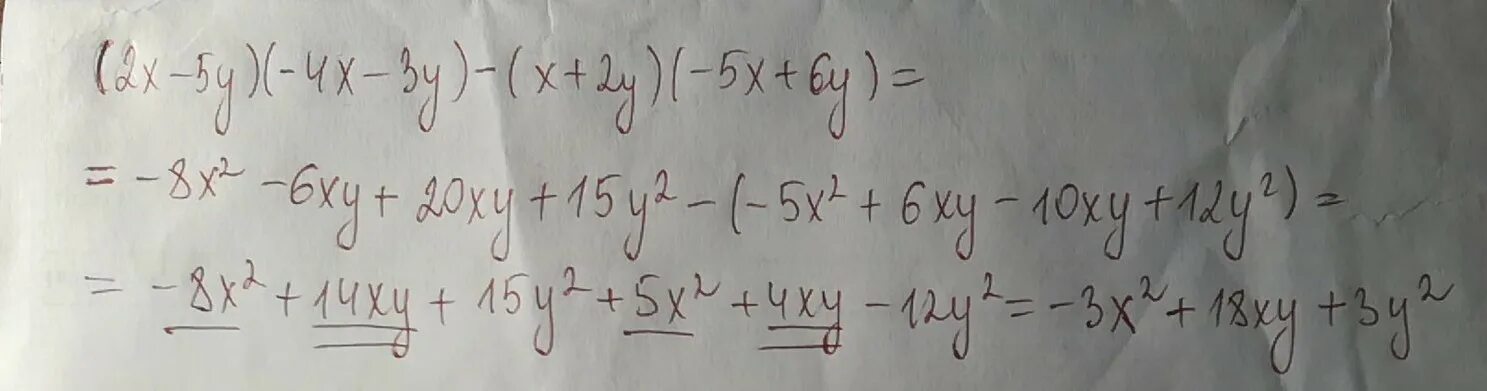 (2x-5y)(-4x-3y)-(x+2y)(-5x+6y)=
=-8x²-6xy+20xy+15y²-(-5x²+6xy-10xy+12y²)=
=-8x²+14xy+15y²+5x²+4xy-12y²=-3x²+18xy+3y²